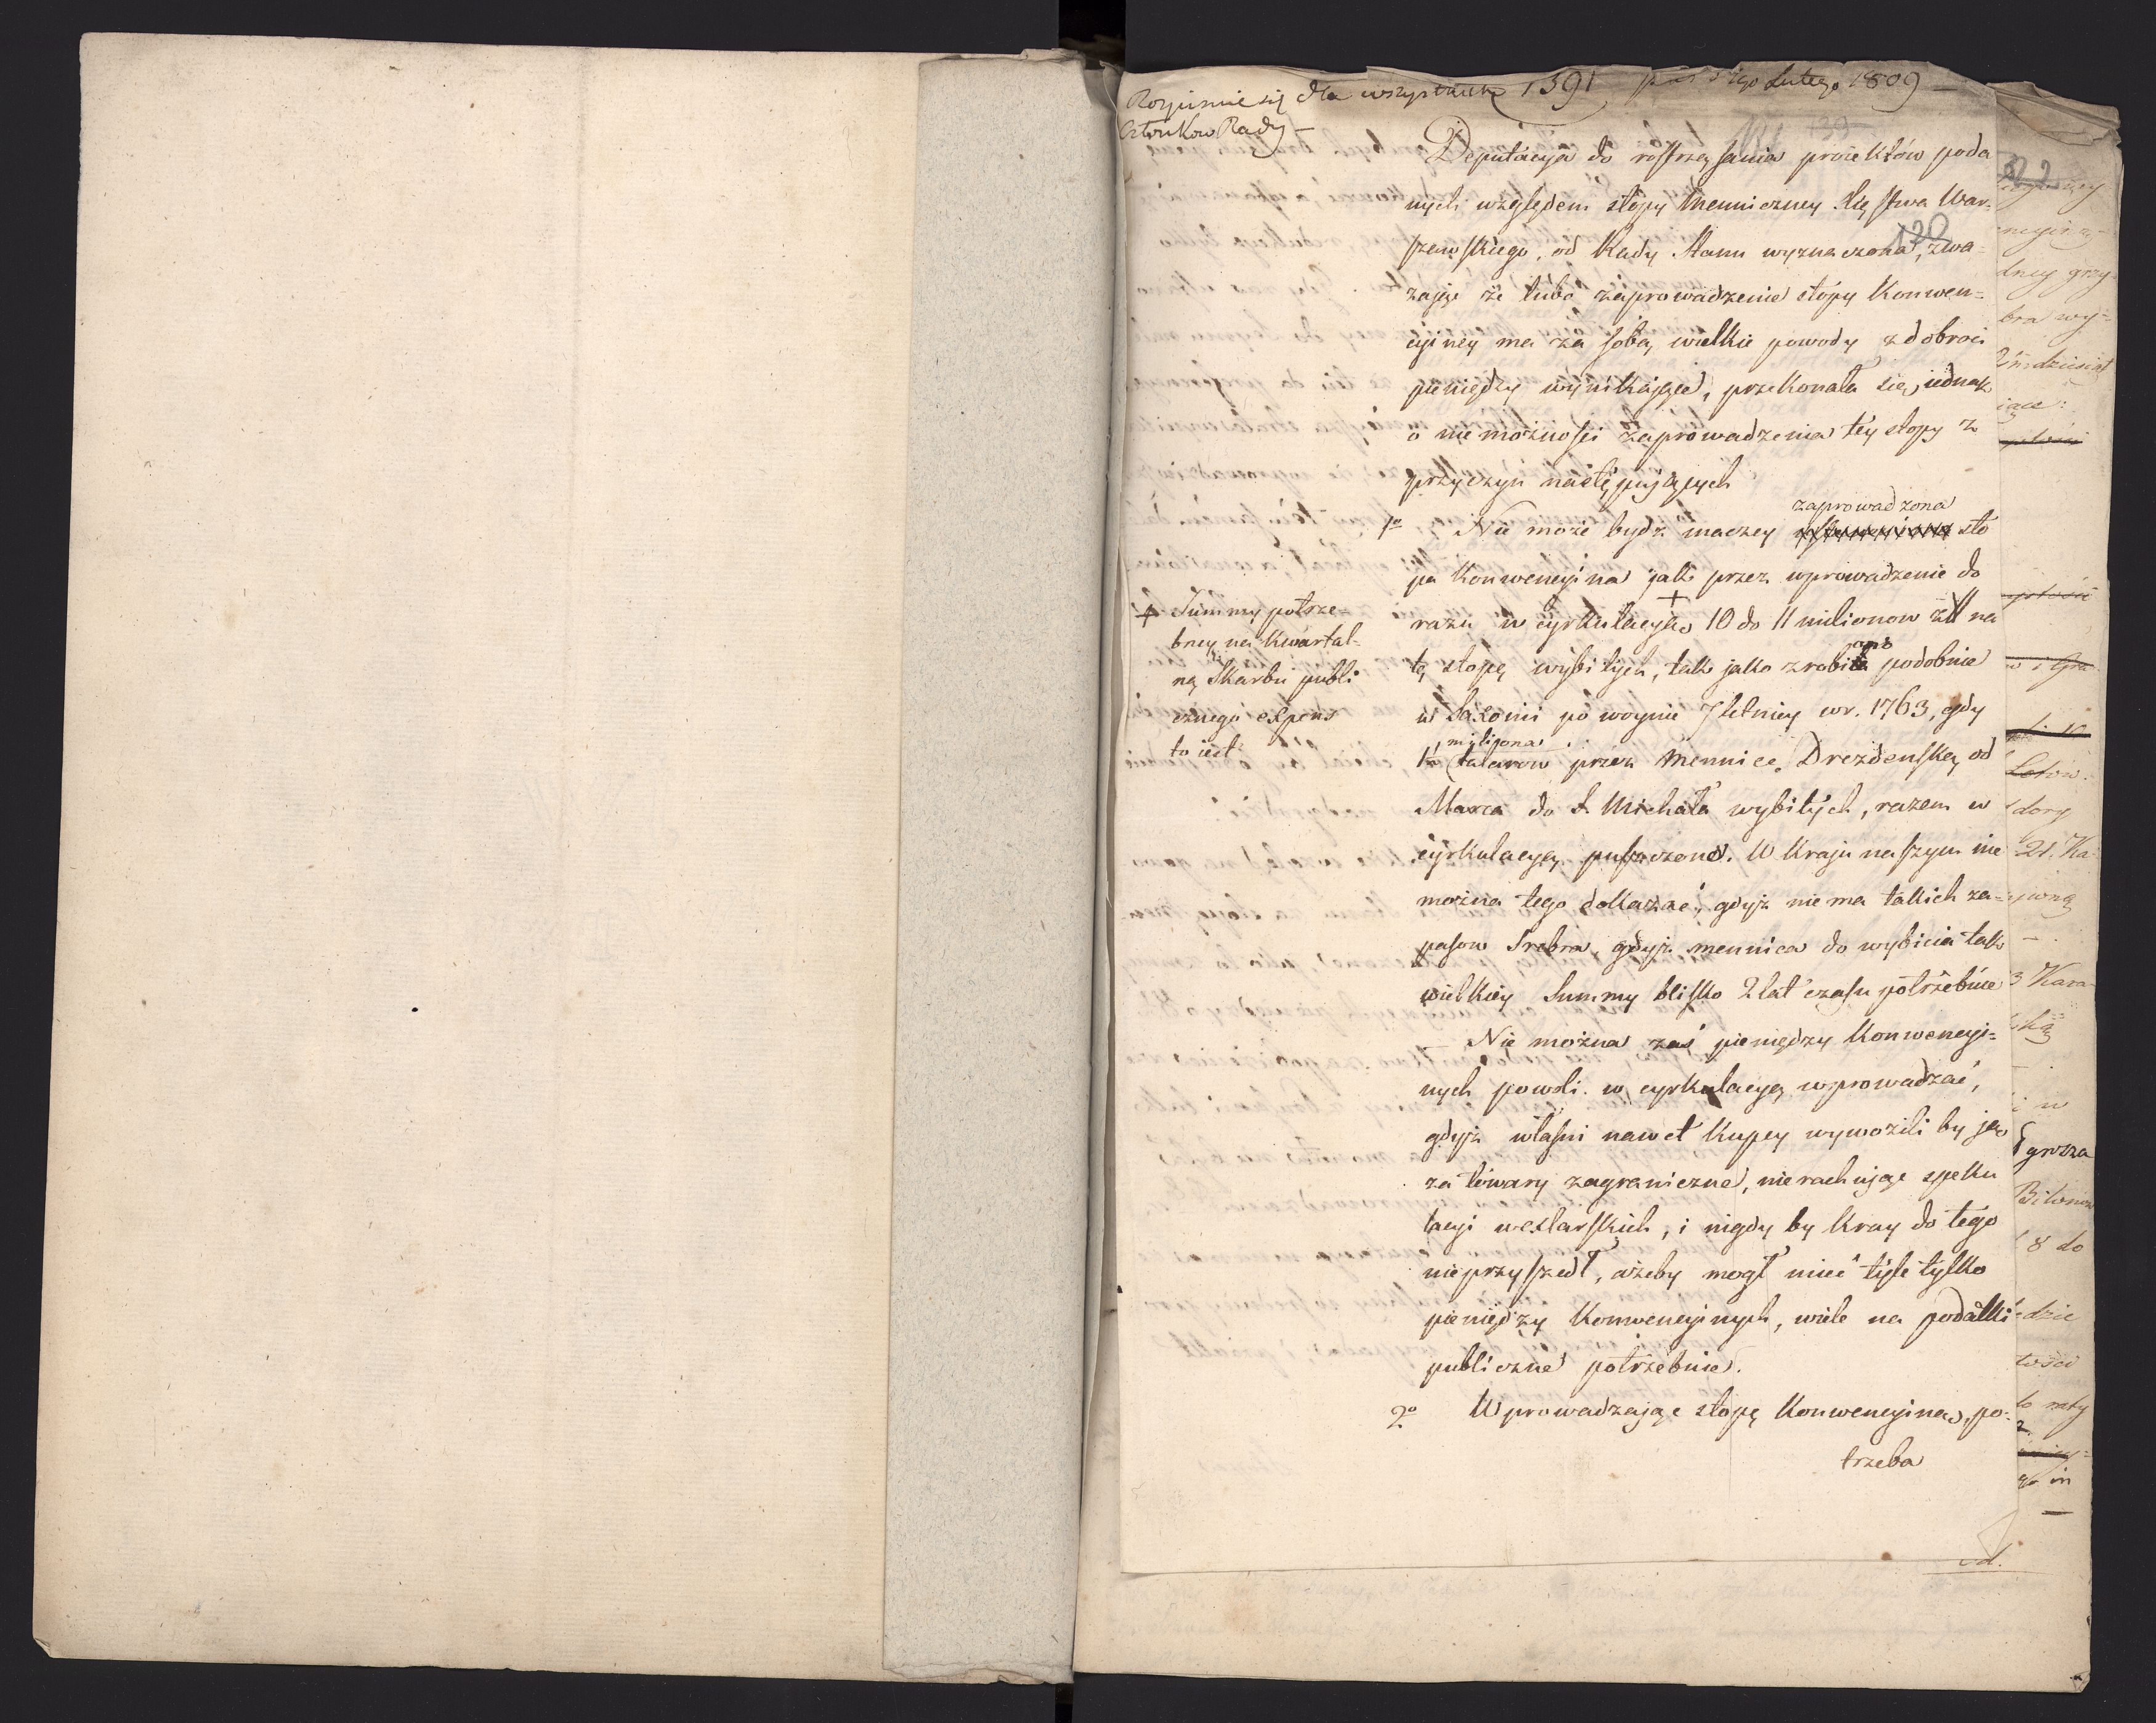 Rozpisuie się dla wszystkich 1391 pr: 3 2go Lutego 1809 —
Członkow Rady —
139
Deputacyia do rostrząsania proiektów poda
nych względem stopy Menniczney Xięstwa War-
120
szawskiego, od Rady Stanu wyznaczona, zwa-
zaiąc że lubo zaprowadzenie stopy Konwen-
cyiney ma za sobą wielkie powody z dobroci
pieniędzy wynikaiące, przekonała się iednak
o niemożnosci zaprowadzenia tey stopy z
przyczyn następuiących
zaprowadzona
1o Nie może bydz inaczey sto
pa Konwencyina jak przez wprowadzenie do
+
razu w cyrkulacyą 10 do 11 milionow zll na
+ Summy potrze-
bney na Kwartal-
ną Skarbu publi
cznego expens
to iest
ono
tę stopę wybitych, tak jako zrobiła podobnie
w Saxonii po woynie 7letniey wr. 1763, gdy
miliona
1 1/2 talarow przez Mennicę Drezdenską od
Marca do S. Michała wybitych, razem w
cyrkulacyą puszczono. W Kraju naszym nie
można tego dokazać, gdyż nie ma takich za-
pasow Srebra, gdyż mennica do wybicia tak
wielkiey Summy blisko 2 lat czasu potrzebuie
— Nie można zaś pieniędzy Konwencyi-
nych powoli w cyrkulacyą wprowadzać,
gdyż własni nawet Kupcy wywozili by je
za towary zagraniczne, nierachuiąc speku
lacyi wexlarskich, i nigdy by Kray do tego
nieprzyszedł, ażeby mogł mieć tyle tylko
pieniędzy Konwencyinych, wiele na podatki
publiczne potrzebuie.
2o Wprowadzaiąc stopę Konwencyiną, po-
trzeba
dney grzy-
bra wy-
dziesiąt
iące:
21. Ka
3 Kara
i w
grosza
Bilonow
8 do
dzie
tości
to raty
od.